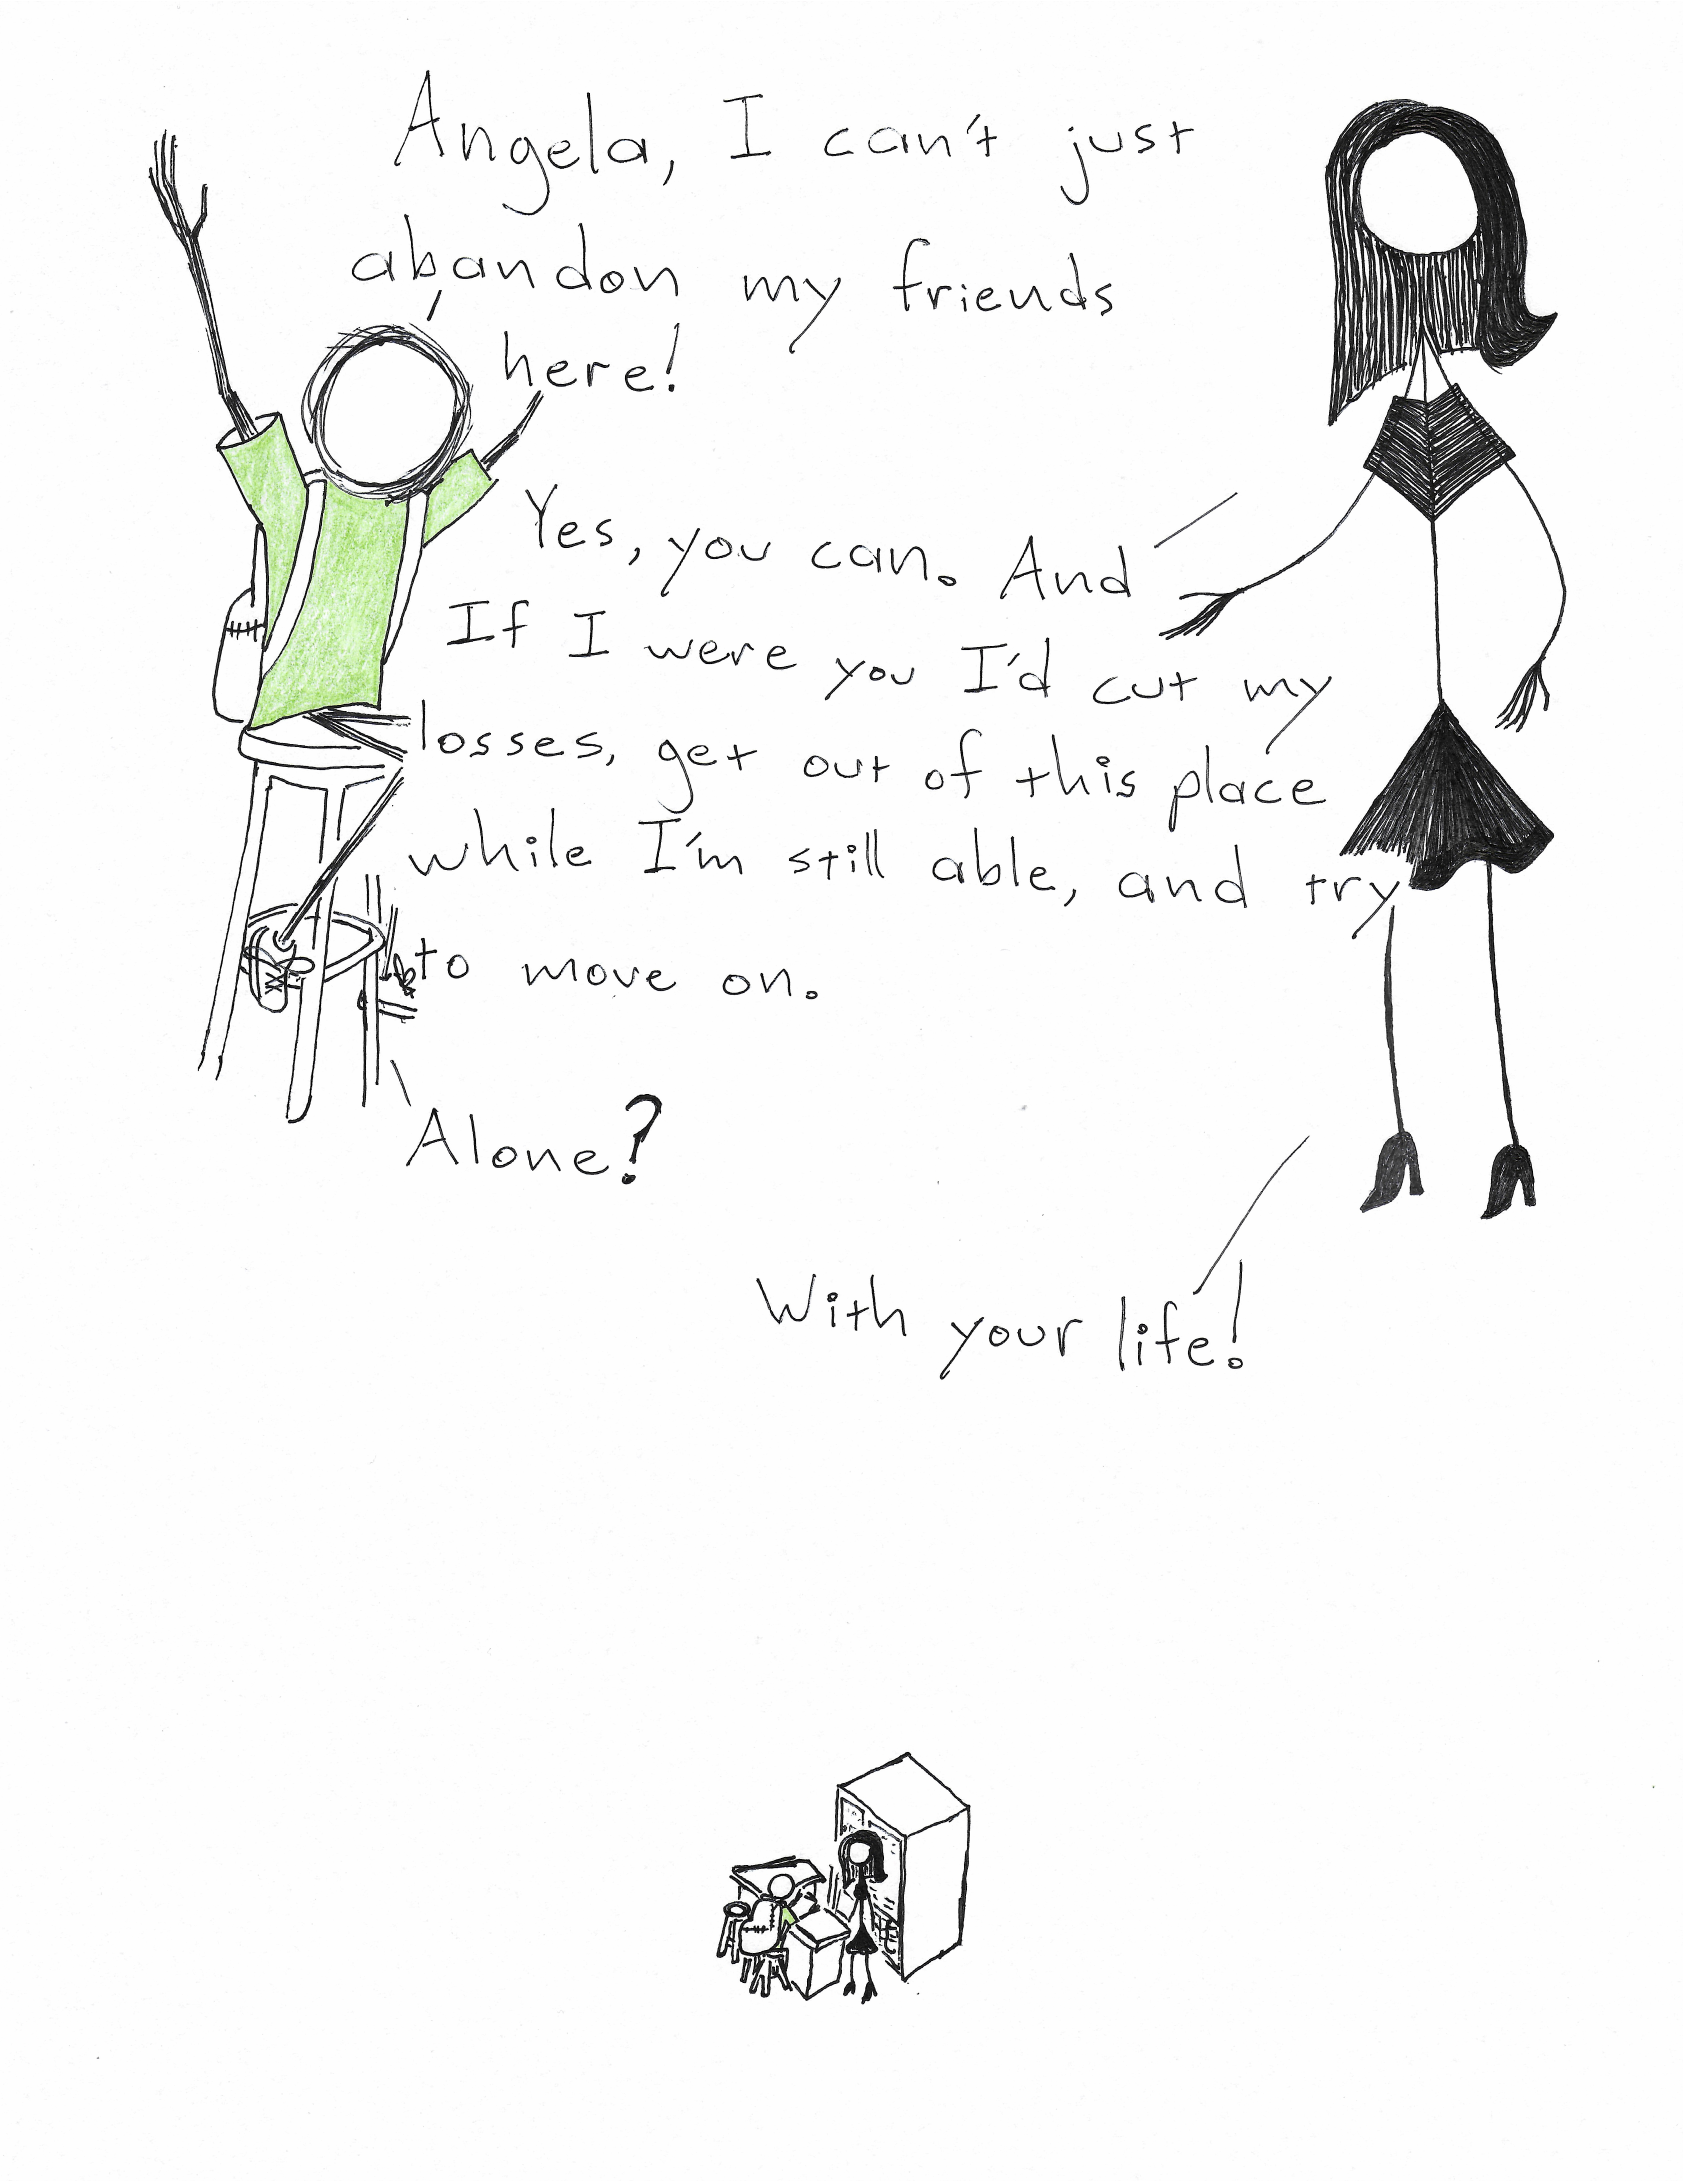 Angela, I can't just
abandon my friends
here!
Yes, you can. And
If I were you I'd cut my
losses, get out of this place
while I'm still able, and try
to move on.
Alone?
With your life!